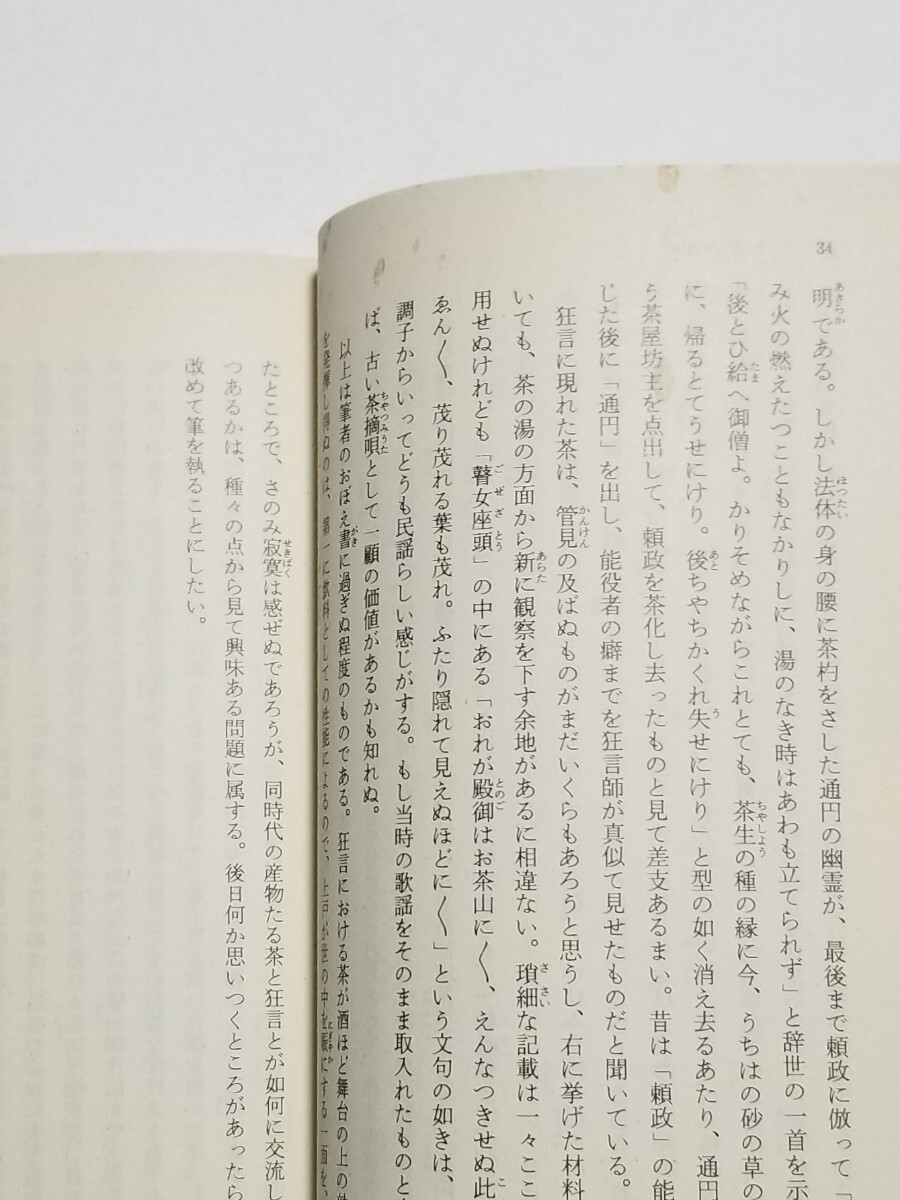 34
明である。しかし法体の身の腰に茶杓をさした通円の幽霊が、最後まで頼政に倣って「
み火の燃えたつこともなかりしに、湯のなき時はあわも立てられず」と辞世の一首を示
「後とひ給へ御僧よ。かりそめながらこれとても、茶生の種の縁に今、うちはの砂の草の
に、帰るとてうせにけり。後ちやちかくれ失せにけり」と型の如く消え去るあたり、通円
う茶屋坊主を点出して、頼政を茶化し去ったものと見て差支あるまい。昔は「頼政」の能
じた後に「通円」を出し、能役者の癖までを狂言師が真似て見せたものだと聞いている。
狂言に現れた茶は、管見の及ばぬものがまだいくらもあろうと思うし、右に挙げた材料
いても、茶の湯の方面から新に観察を下す余地があるに相違ない。瑣細な記載は一々ここ
用せぬけれども「瞽女座頭」の中にある「おれが殿御はお茶山に〱、えんなつきせぬ此
ゑん〱、茂り茂れる葉も茂れ。ふたり隠れて見えぬほどに〱」という文句の如きは、
調子からいってどうも民謡らしい感じがする。もし当時の歌謡をそのまま取入れたものと
ば、古い茶摘唄として一顧の価値があるかも知れぬ。
以上は筆者のおぼえ書に過ぎぬ程度のものである。狂言における茶が酒ほど舞台の上の
を発揮し得ぬのは、第一に飲料としての性能によるので、上戸が世の中を賑にする一面を、
たところで、さのみ寂寞は感ぜぬであろうが、同時代の産物たる茶と狂言とが如何に交流し
つあるかは、種々の点から見て興味ある問題に属する。後日何か思いつくところがあったら
改めて筆を執ることにしたい。